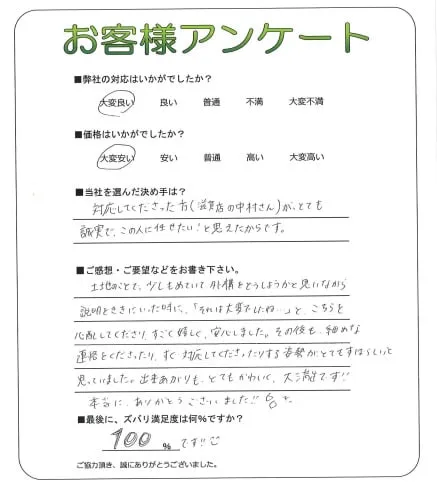 お客様アンケート
■弊社の対応はいかがでしたか?
大変良い 良い 普通 不満 大変不満
■価格はいかがでしたか?
大変安い 安い 普通 高い 大変高い
■当社を選んだ決め手は?
対応してくださった方(滋賀店の中村さん)が、とても
誠実で、この人に任せたい!と思えたからです。
■ご感想・ご要望などをお書き下さい。
土地のことで、少しもめていて、外構をどうしようかと思いながら
説明をききにいった時に、「それは大変でしたね…」と、こちらを
心配してくださり、すごく嬉しく、安心しました。その後も、細めな
連絡をくださったり、すぐ対応してくださったりする姿勢がとてもすばらしいと
思っていました。出来あがりも、とてもかわいく、大満足です!!
本当に、ありがとうございました!!
■最後に、ズバリ満足度は何%ですか?
100 % です!!
ご協力頂き、誠にありがとうございました。